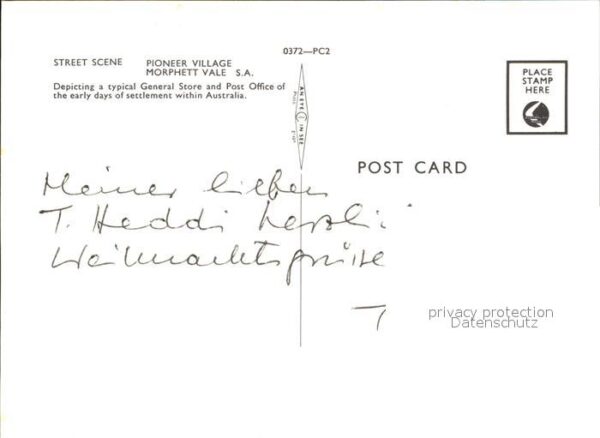 0372—PC2
STREET SCENE PIONEER VILLAGE
MORPHETT VALE S.A.
Depicting a typical General Store and Post Office of
the early days of settlement within Australia.
PLACE
STAMP
HERE
AN EYE IN SEE
POST CARD
Meiner lieben
T. Heddi herzli
Weihnachtsgrüsse
T
privacy protection
Datenschutz